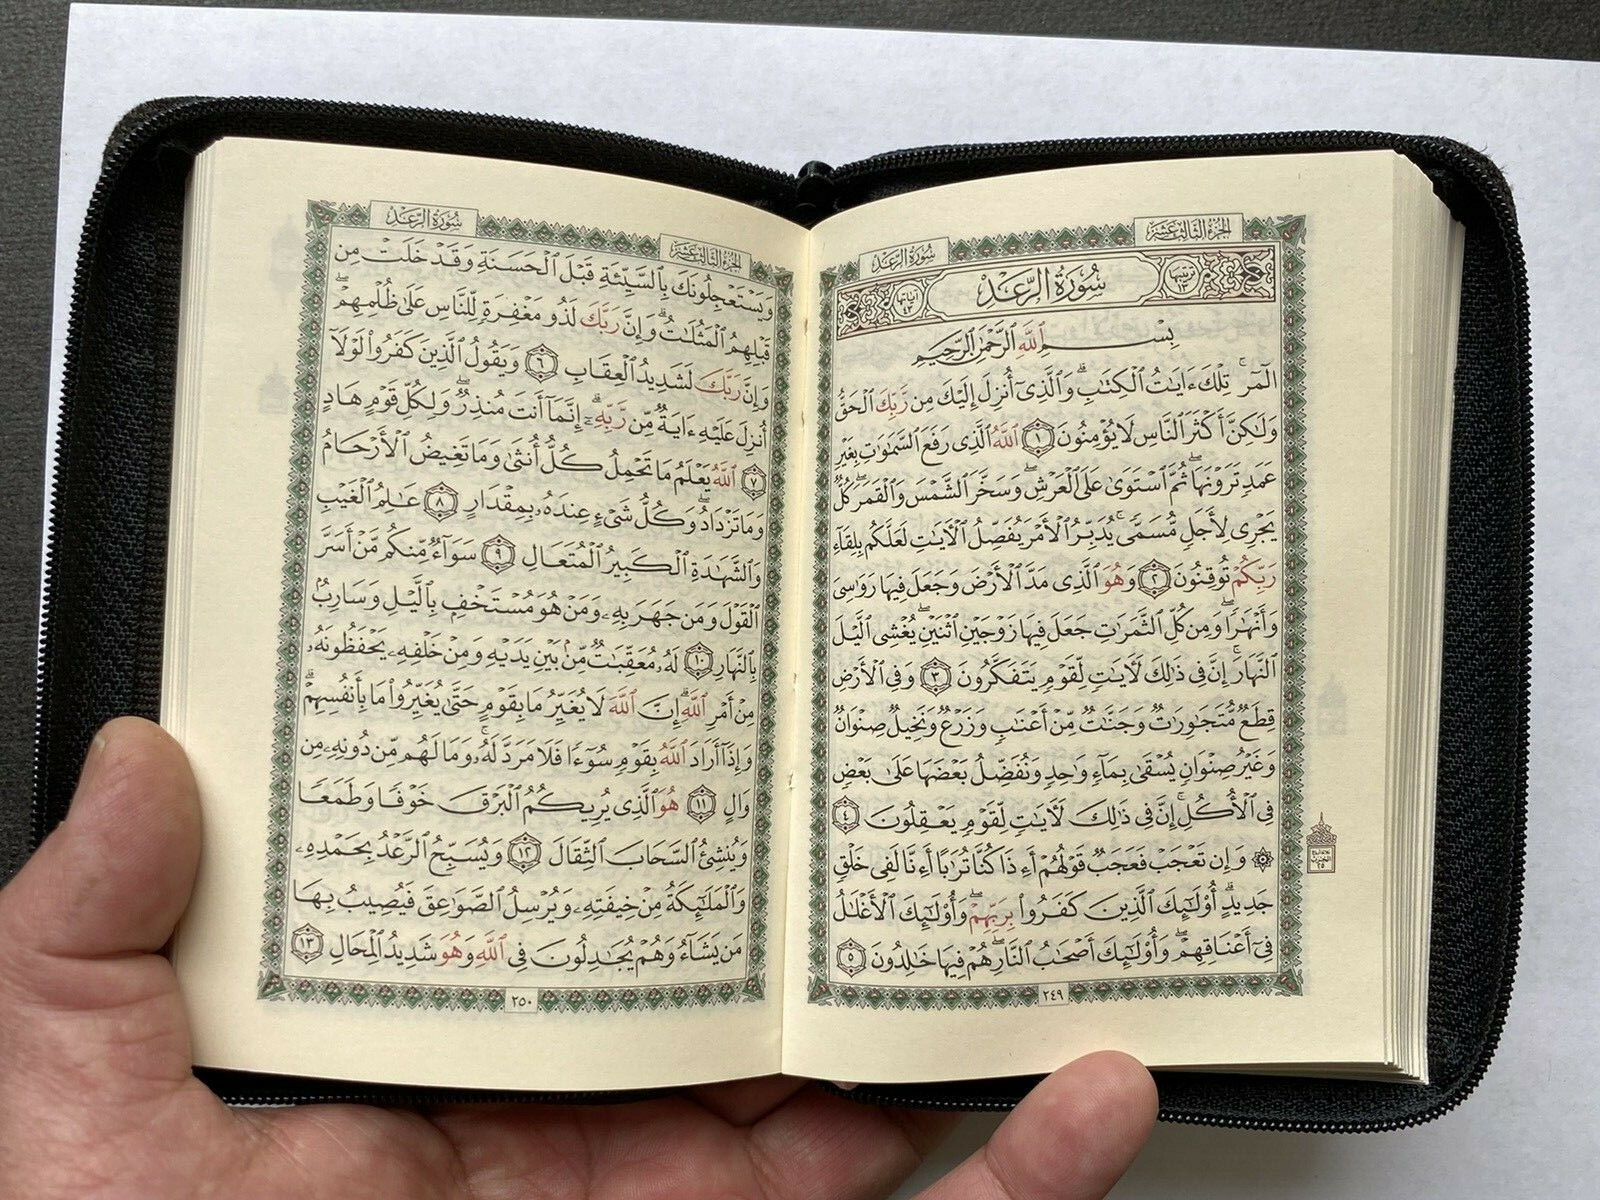 الجزء الثالث عشر
سورة الرعد
ترتيبها ١٣
سُورَةُ الرَّعْدِ
آياتها ٤٣
بِسْمِ ٱللَّهِ ٱلرَّحْمَٰنِ ٱلرَّحِيمِ
الٓمٓرۚ تِلْكَ ءَايَٰتُ ٱلْكِتَٰبِۗ وَٱلَّذِىٓ أُنزِلَ إِلَيْكَ مِن رَّبِّكَ ٱلْحَقُّ
وَلَٰكِنَّ أَكْثَرَ ٱلنَّاسِ لَا يُؤْمِنُونَ ١ ٱللَّهُ ٱلَّذِى رَفَعَ ٱلسَّمَٰوَٰتِ بِغَيْرِ
عَمَدٍ تَرَوْنَهَاۖ ثُمَّ ٱسْتَوَىٰ عَلَى ٱلْعَرْشِۖ وَسَخَّرَ ٱلشَّمْسَ وَٱلْقَمَرَۖ كُلٌّ
يَجْرِى لِأَجَلٍ مُّسَمًّىۚ يُدَبِّرُ ٱلْأَمْرَ يُفَصِّلُ ٱلْءَايَٰتِ لَعَلَّكُم بِلِقَآءِ
رَبِّكُمْ تُوقِنُونَ ٢ وَهُوَ ٱلَّذِى مَدَّ ٱلْأَرْضَ وَجَعَلَ فِيهَا رَوَٰسِىَ
وَأَنْهَٰرًاۖ وَمِن كُلِّ ٱلثَّمَرَٰتِ جَعَلَ فِيهَا زَوْجَيْنِ ٱثْنَيْنِۖ يُغْشِى ٱلَّيْلَ
ٱلنَّهَارَۚ إِنَّ فِى ذَٰلِكَ لَءَايَٰتٍ لِّقَوْمٍ يَتَفَكَّرُونَ ٣ وَفِى ٱلْأَرْضِ
قِطَعٌ مُّتَجَٰوِرَٰتٌ وَجَنَّٰتٌ مِّنْ أَعْنَٰبٍ وَزَرْعٌ وَنَخِيلٌ صِنْوَانٌ
وَغَيْرُ صِنْوَانٍ يُسْقَىٰ بِمَآءٍ وَٰحِدٍ وَنُفَضِّلُ بَعْضَهَا عَلَىٰ بَعْضٍ
فِى ٱلْأُكُلِۚ إِنَّ فِى ذَٰلِكَ لَءَايَٰتٍ لِّقَوْمٍ يَعْقِلُونَ ٤
۞ وَإِن تَعْجَبْ فَعَجَبٌ قَوْلُهُمْ أَءِذَا كُنَّا تُرَٰبًا أَءِنَّا لَفِى خَلْقٍ
جَدِيدٍۗ أُو۟لَٰٓئِكَ ٱلَّذِينَ كَفَرُوا۟ بِرَبِّهِمْۖ وَأُو۟لَٰٓئِكَ ٱلْأَغْلَٰلُ
فِىٓ أَعْنَاقِهِمْۖ وَأُو۟لَٰٓئِكَ أَصْحَٰبُ ٱلنَّارِۖ هُمْ فِيهَا خَٰلِدُونَ ٥
٢٤٩
الجزء الثالث عشر
سورة الرعد
وَيَسْتَعْجِلُونَكَ بِٱلسَّيِّئَةِ قَبْلَ ٱلْحَسَنَةِ وَقَدْ خَلَتْ مِن
قَبْلِهِمُ ٱلْمَثُلَٰتُۗ وَإِنَّ رَبَّكَ لَذُو مَغْفِرَةٍ لِّلنَّاسِ عَلَىٰ ظُلْمِهِمْۖ
وَإِنَّ رَبَّكَ لَشَدِيدُ ٱلْعِقَابِ ٦ وَيَقُولُ ٱلَّذِينَ كَفَرُوا۟ لَوْلَآ
أُنزِلَ عَلَيْهِ ءَايَةٌ مِّن رَّبِّهِۦٓۗ إِنَّمَآ أَنتَ مُنذِرٌۖ وَلِكُلِّ قَوْمٍ هَادٍ
٧ ٱللَّهُ يَعْلَمُ مَا تَحْمِلُ كُلُّ أُنثَىٰ وَمَا تَغِيضُ ٱلْأَرْحَامُ
وَمَا تَزْدَادُۖ وَكُلُّ شَىْءٍ عِندَهُۥ بِمِقْدَارٍ ٨ عَٰلِمُ ٱلْغَيْبِ
وَٱلشَّهَٰدَةِ ٱلْكَبِيرُ ٱلْمُتَعَالِ ٩ سَوَآءٌ مِّنكُم مَّنْ أَسَرَّ
ٱلْقَوْلَ وَمَن جَهَرَ بِهِۦ وَمَنْ هُوَ مُسْتَخْفٍۭ بِٱلَّيْلِ وَسَارِبٌۢ
بِٱلنَّهَارِ ١٠ لَهُۥ مُعَقِّبَٰتٌ مِّنۢ بَيْنِ يَدَيْهِ وَمِنْ خَلْفِهِۦ يَحْفَظُونَهُۥ
مِنْ أَمْرِ ٱللَّهِۗ إِنَّ ٱللَّهَ لَا يُغَيِّرُ مَا بِقَوْمٍ حَتَّىٰ يُغَيِّرُوا۟ مَا بِأَنفُسِهِمْۗ
وَإِذَآ أَرَادَ ٱللَّهُ بِقَوْمٍ سُوٓءًا فَلَا مَرَدَّ لَهُۥۚ وَمَا لَهُم مِّن دُونِهِۦ مِن
وَالٍ ١١ هُوَ ٱلَّذِى يُرِيكُمُ ٱلْبَرْقَ خَوْفًا وَطَمَعًا
وَيُنشِئُ ٱلسَّحَابَ ٱلثِّقَالَ ١٢ وَيُسَبِّحُ ٱلرَّعْدُ بِحَمْدِهِۦ
وَٱلْمَلَٰٓئِكَةُ مِنْ خِيفَتِهِۦ وَيُرْسِلُ ٱلصَّوَٰعِقَ فَيُصِيبُ بِهَا
مَن يَشَآءُ وَهُمْ يُجَٰدِلُونَ فِى ٱللَّهِ وَهُوَ شَدِيدُ ٱلْمِحَالِ ١٣
٢٥٠